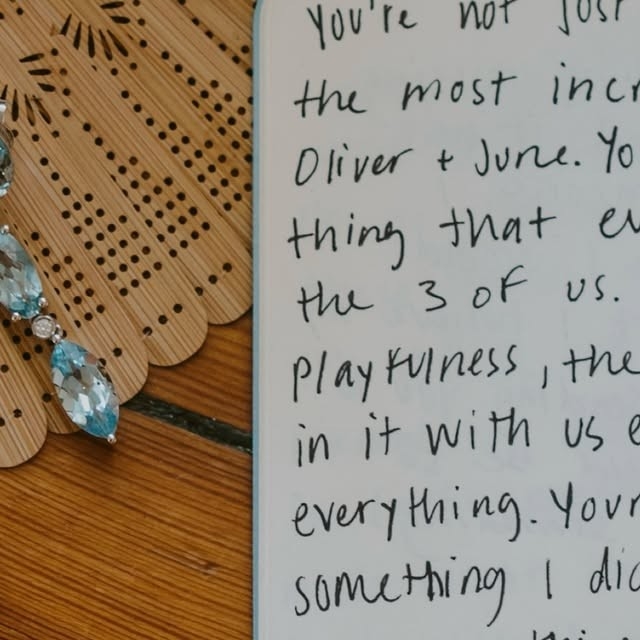 You're not just
the most incr
Oliver + June. Yo
thing that ev
the 3 of us.
Playfulness, the
in it with us e
everything. Your
something I did